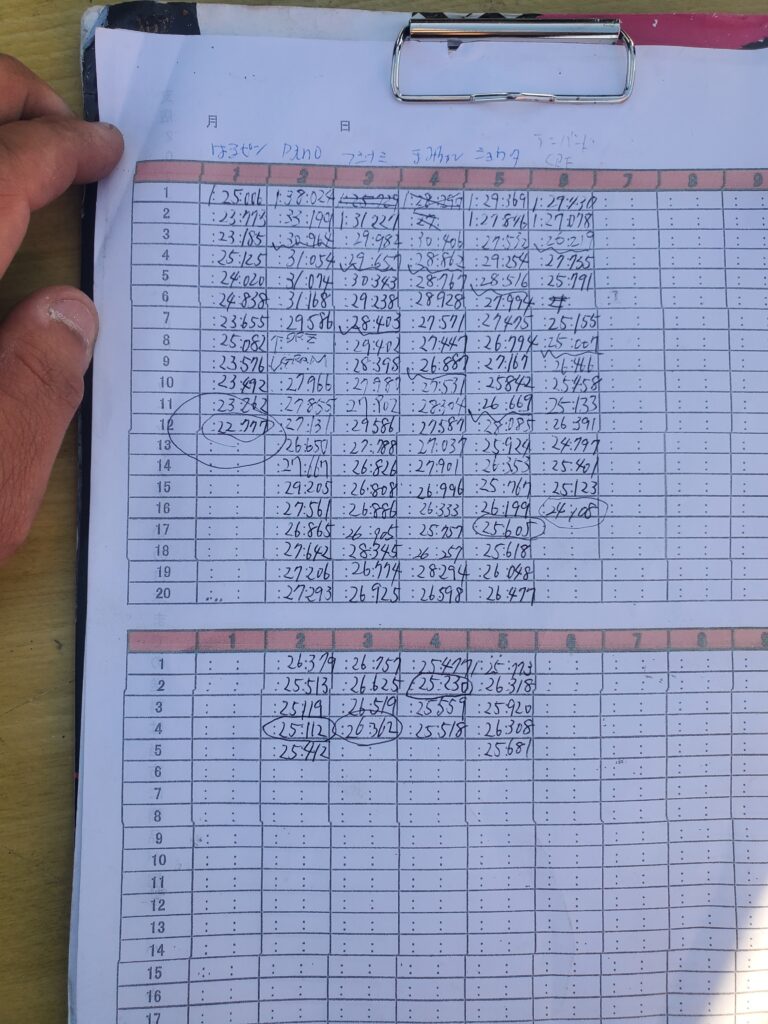 月 日
1 2 3 4 5 6 7 8 9
1 1:25:006 1:38:024 1:29:369 1:27:430
2 :23:773 :33:199 1:31:227 1:27:846 1:27:078
3 :23:185 :30:964 :29:982 :30:406 :27:532 :26:219
4 :25:125 :31:054 :29:657 :28:862 :29:254 :27:735
5 :24:020 :31:074 :30:343 :28:767 :28:516 :25:791
6 :24:838 :31:168 :29:238 :28:928 :27:994
7 :23:655 :29:586 :28:403 :27:571 :27:475 :25:155
8 :25:082 :29:402 :27:447 :26:794 :25:007
9 :23:576 :28:398 :26:887 :27:167 :26:466
10 :23:492 :27:966 :27:987 :27:531 :25:842 :25:458
11 :23:262 :27:855 :27:802 :28:304 :26:669 :25:133
12 :22:777 :27:131 :29:586 :27:587 :25:085 :26:391
13 :26:650 :27:788 :27:037 :25:924 :24:797
14 :27:167 :26:826 :27:901 :26:353 :25:401
15 :29:205 :26:808 :26:996 :25:767 :25:123
16 :27:561 :26:886 :26:333 :26:199 :24:708
17 :26:865 :26:905 :25:757 :25:605
18 :27:642 :28:345 :26:257 :25:618
19 :27:206 :26:774 :28:294 :26:048
20 :27:293 :26:925 :26:598 :26:477
1 2 3 4 5 6 7 8 9
1 :26:379 :26:757 :25:477 1:25:773
2 :25:513 :26:625 :25:230 :26:318
3 :25:119 :26:519 :25:559 :25:920
4 :25:112 :26:362 :25:518 :26:308
5 :25:412 :25:681
6
7
8
9
10
11
12
13
14
15
16
17